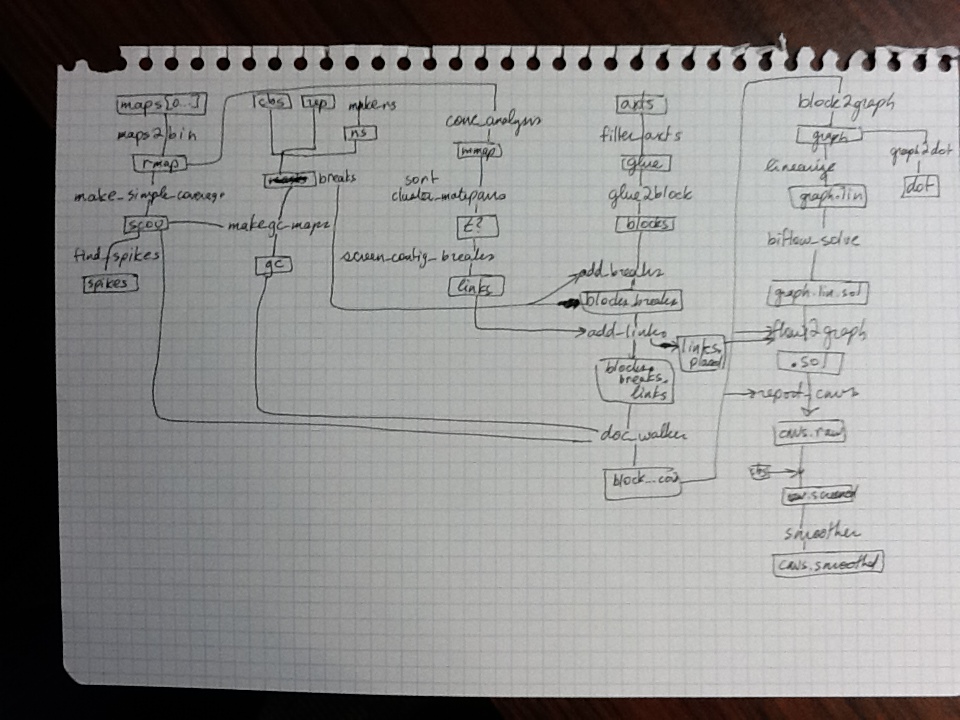 maps[0...]
maps2bin
rmap
make_simple_coverage
scov
find_spikes
spikes
cbs
rep
makens
ns
breaks
makegc_maps
gc
conc_analysis
mmap
sort
cluster_matepairs
t?
screen_contig_breaks
links
arcts
filter_arcts
glue
glue2block
blocks
add_breaks
blocks.breaks
add-links
links.
placed
blocks.
breaks.
links
doc_walker
block...cov
block2graph
graph
graph2dot
dot
linearize
graph.lin
biflow_solve
graph.lin.sol
flow2graph
.sol
report_cnvs
cnvs.raw
cbs
smoother
cnvs.smoothed